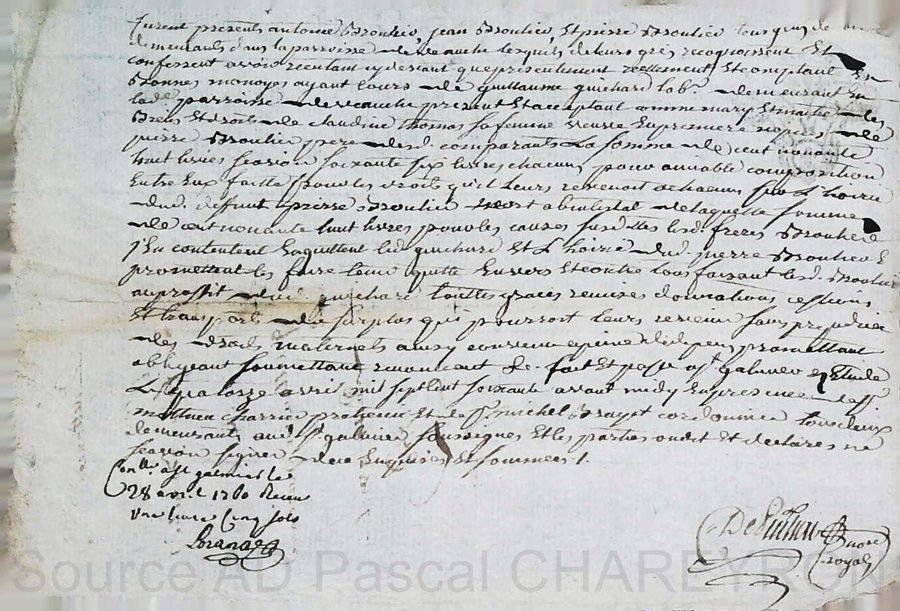 furent présents antoine Broulier, jean Broulier, et pierre Broulier tous gens de
demeurants dans la parroisse de veauche lesquels de leurs grés recognoissent Et
confessent avoir receu tant cy devant que présentement réellement et comptant En
Bonnes monoyes ayant cours de guillaume guichard lab.r demeurant En
lad.e parroisse de veauche présent et acceptant comme mary et maitre des
Biens et droits de claudine thomas sa femme veuve en première nopces de
pierre Broulier père des d. comparants la somme de cent nonante
huit livres feasion soixante six livres chacun, pour amiable composition
Entre Eux faitte pour les droits qu'il leurs revenoit a chacun sur L'hoirie
dud. deffunt pierre Broulier mort abintestat de laquelle somme
de cent nonante huit livres pour les causes susdittes lesd. frères Broulier
s'En contentent En quittent led. guichard et L'hoirie dud. pierre Broulier E
promettent les faire tenir quitte Envers et contre tous faisant lesd. Broulier
au proffit dud. guichard touttes graces remises donnations cessions
Et transports du surplus qui pourroit leurs revenir sans préjudice
des droits maternels ainsy convenu a peine de depens promettant
obligeant soumettant renoncant &c. fait et passé a S.t galmier Etude
Le quatorze avril mil sept cent soixante avant midy En présence de s.r
mathieu charrier praticien Et de s.r michel Brayet cordonnier tous deux
demeurants aud. S.t galmier soussignés et les parties ont dit et déclaré ne
scavoir signer de ce Enquises et sommées /.
Con.lé a S.t galmier le
28 avril 1760 Receu
une livre cinq sols
not.re
royal
Source AD Pascal CHAREYRON